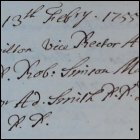 13th Febry. 175
illon Vice Rector
P. Rob: Simson M
r Ad. Smith P.P.
P. P.